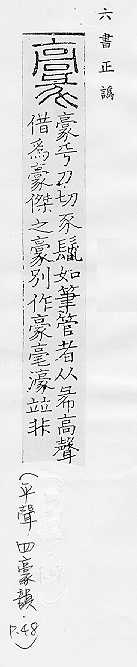 六書正譌
豪乎刀切豕鬣如筆管者从㣇高聲
借爲豪傑之豪別作豪毫濠竝非
(平聲 四豪韻. P.48)